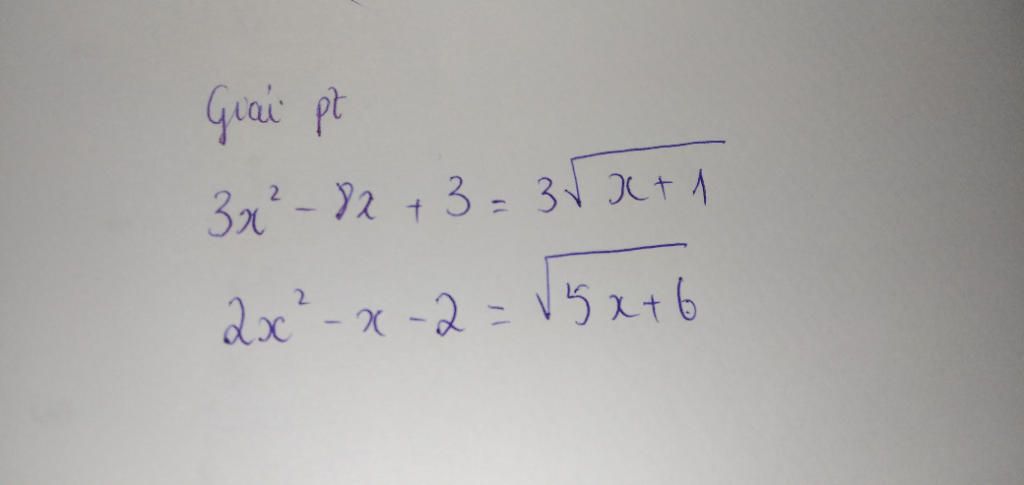 Giải pt
3x² - 8x + 3 = 3√(x+1)
2x² - x - 2 = √(5x+6)